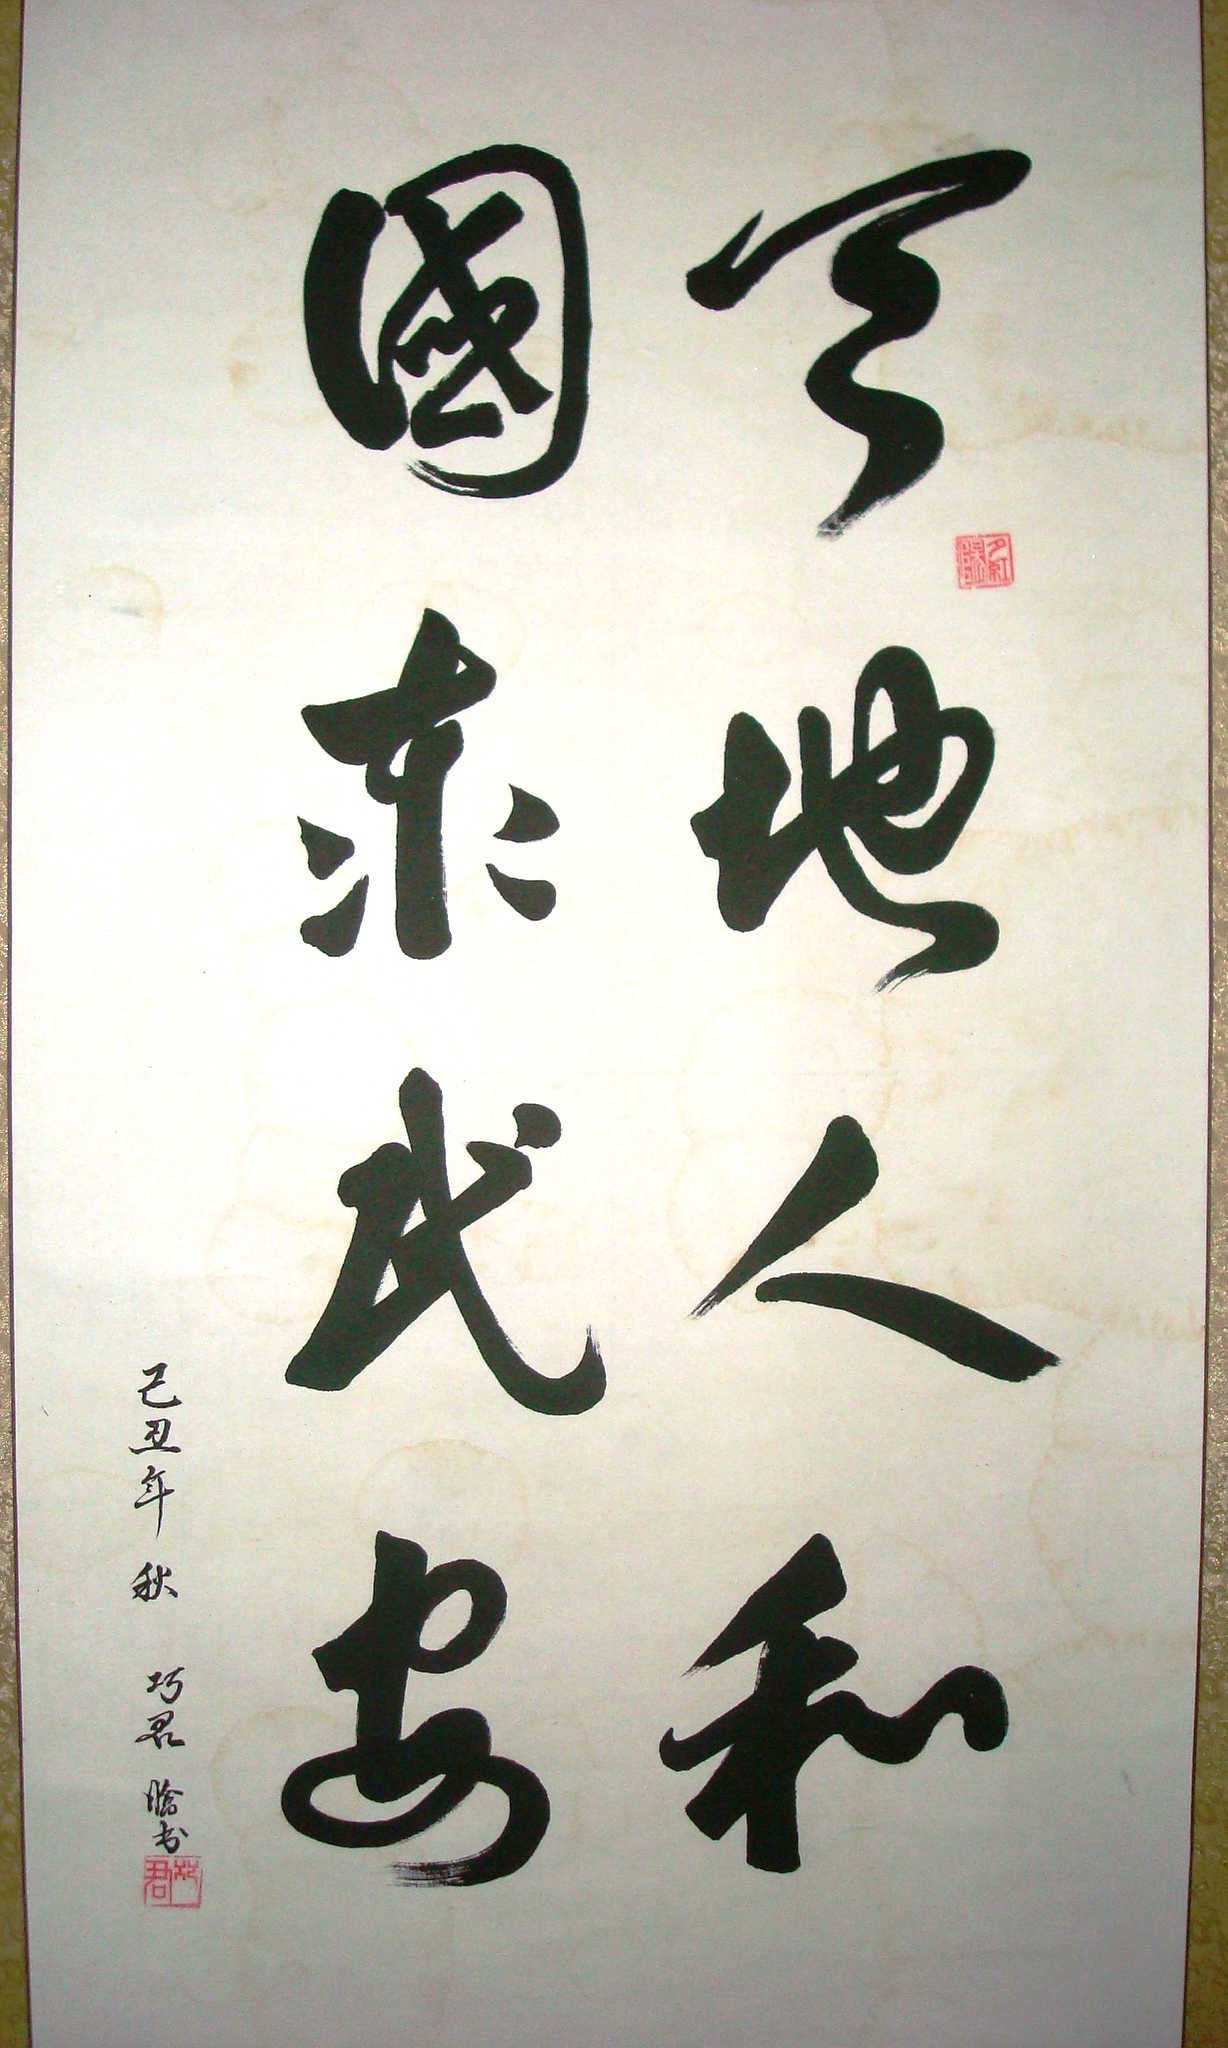 天地人和
國泰民安
己丑年秋 巧君 書